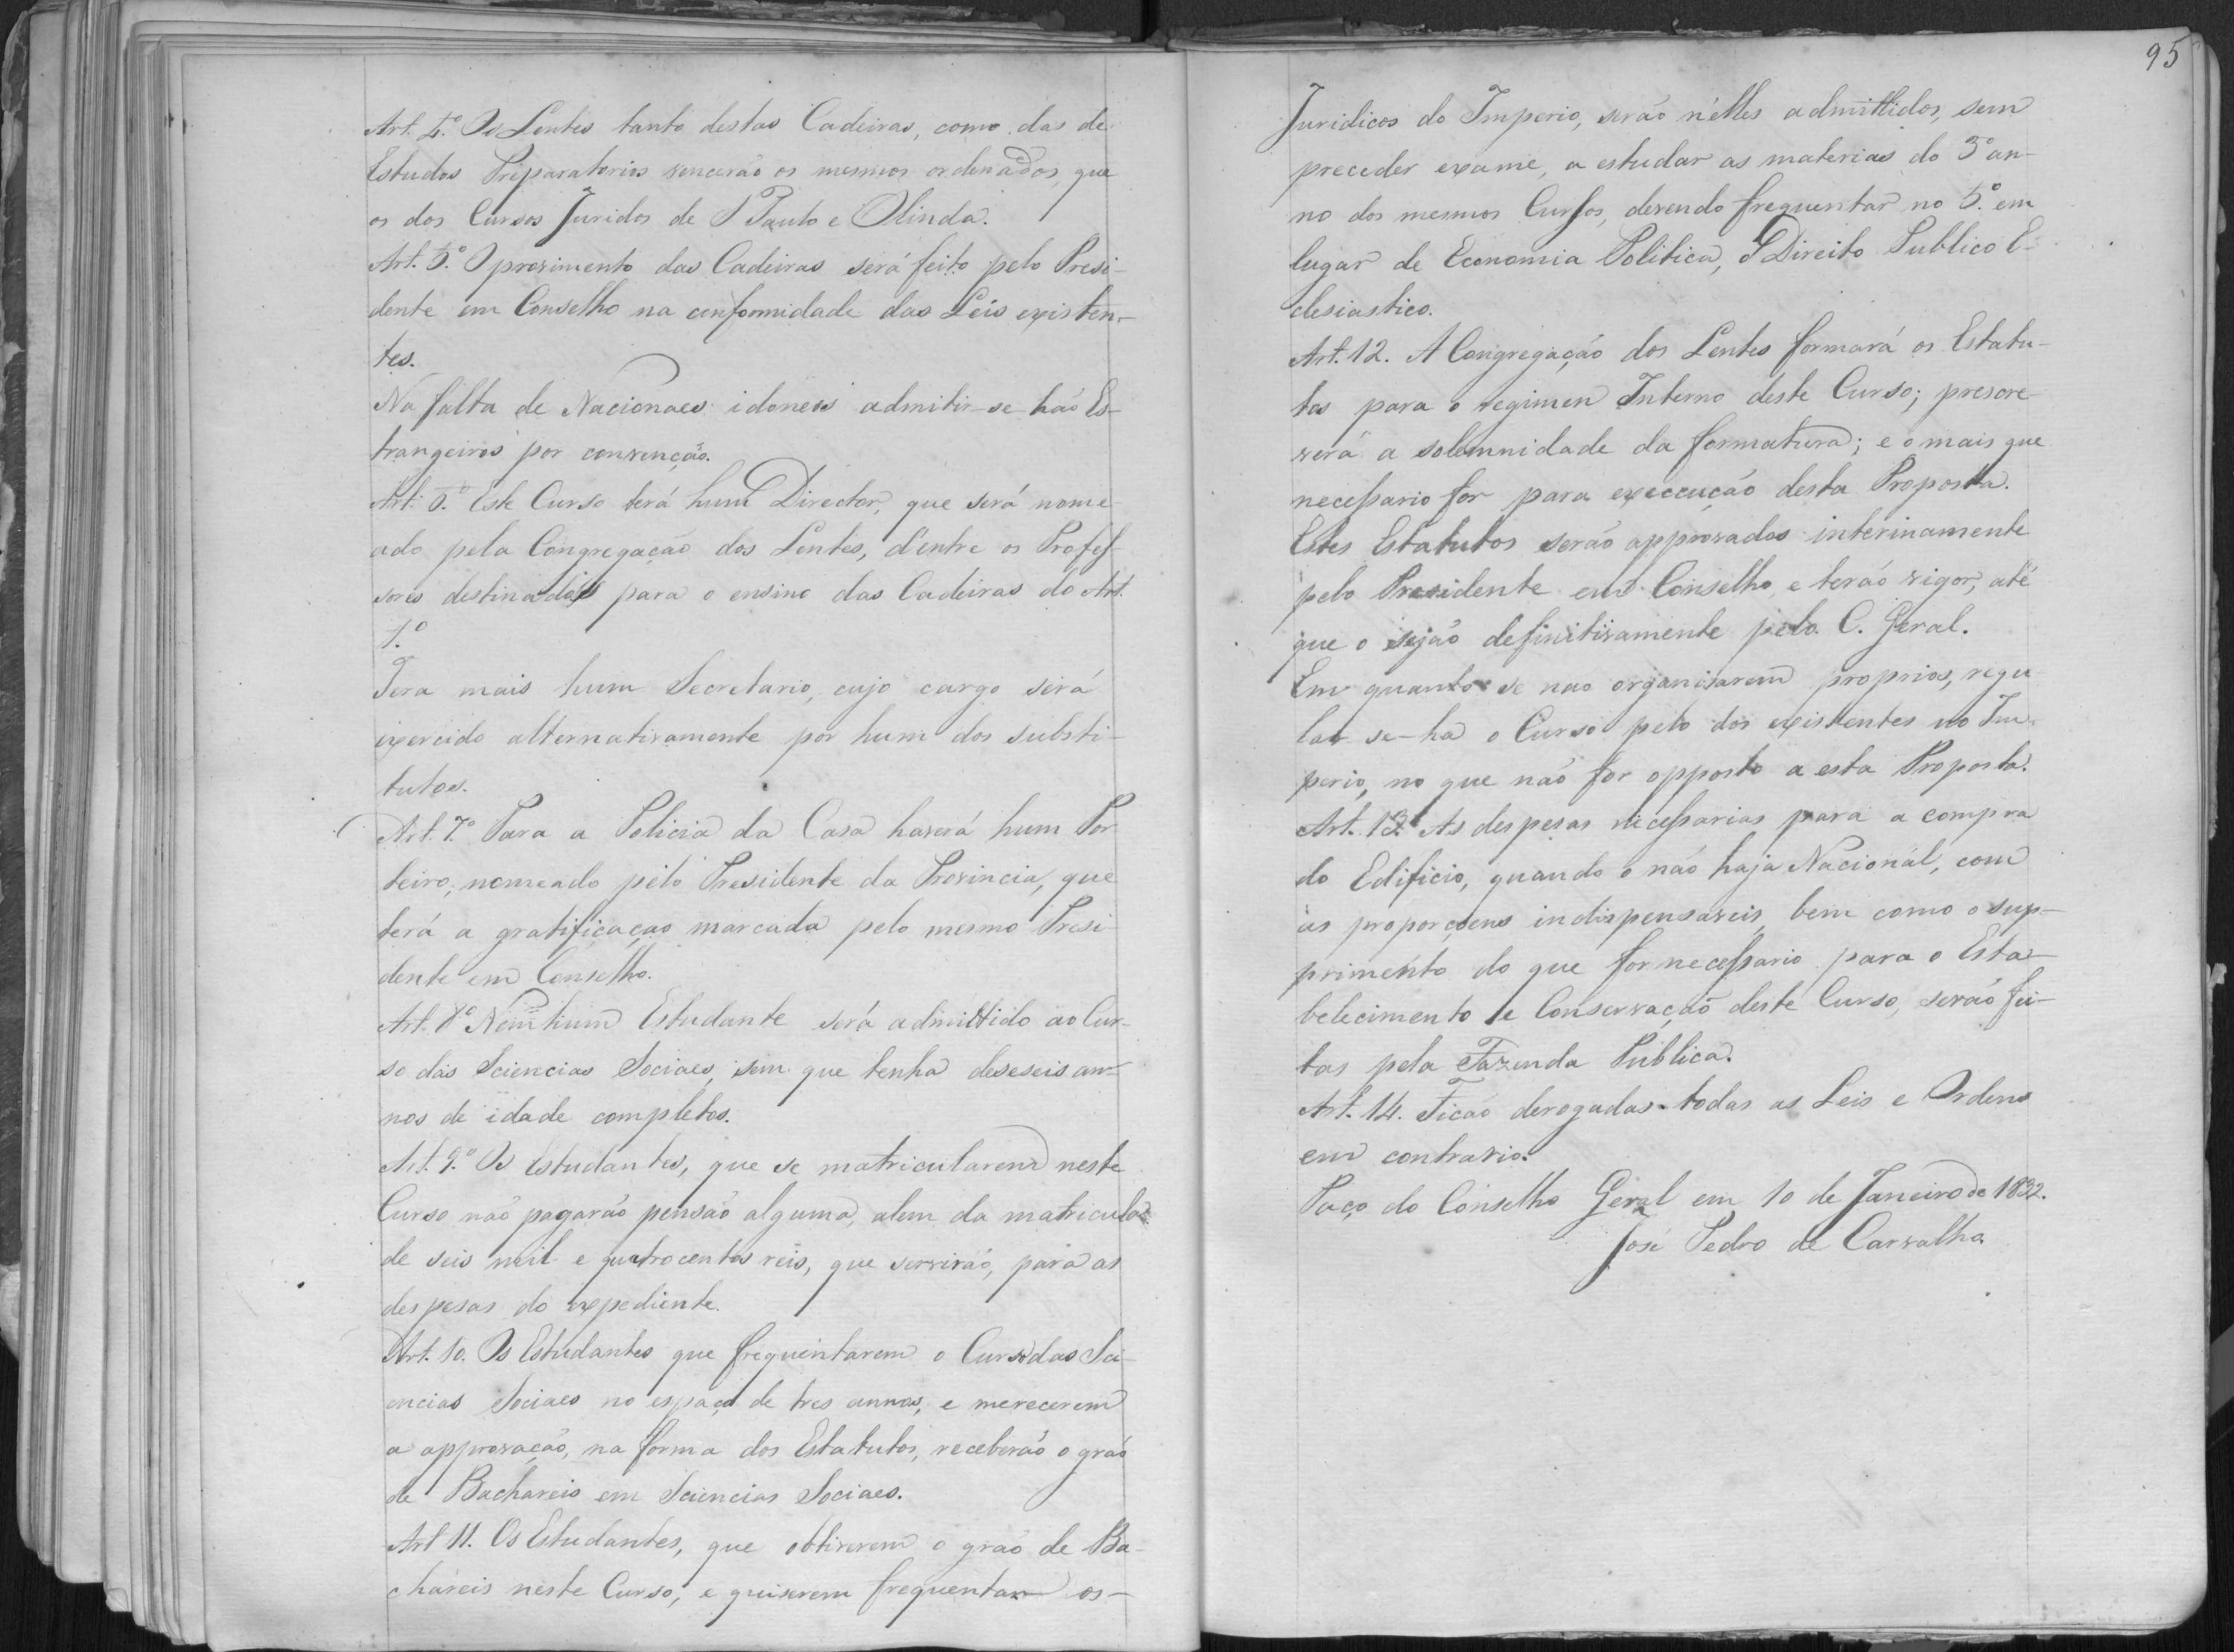 Art. 4.º Os Lentes tanto destas Cadeiras, como das de
Estudos Priparatorios vencerão os mesmos ordenados, que
os dos Cursos Juridos de S Paulo e Olinda.
Art. 5.º O provimento das Cadeiras será feito pelo Presi-
dente em Conselho na conformidade das Leis existen-
tes.
Na falta de Nacionaes idoneos admitir-se-hão Es-
trangeiros por convenção.
Art. 6.º Este Curso terá hum Director, que será nome
ado pela Congregação dos Lentes, d'entre os Profes-
sores destinados para o ensino das Cadeiras do Art.
1.º
Tera mais hum Secretario, cujo cargo será
exercido alternativamente por hum dos substi-
tutos.
Art. 7.º Para a Policia da Casa haverá hum Por
teiro, nomeado pelo Presidente da Provincia, que
terá a gratificaçao marcada pelo mesmo Presi-
dente em Conselho.
Art. 8º Nemhum Estudante será admittido ao Cur-
so das Sciencias Sociaes, sem que tenha deseseis an-
nos de idade completos.
Art. 9.º Os Estudantes, que se matricularem neste
Curso não pagarão pensão alguma, alem da matricula
de seis mil e quatrocentos reis, que servirão, para as
despesas do expediente.
Art. 10. Os Estudantes que frequentarem o Curso das Sci-
encias Sociaes no espaço de tres annos, e merecerem
a approvação, na forma dos Estatutos, receberão o grao
de Bachareis em Sciencias Sociaes.
Art 11. Os Estudantes, que obtiverem o grao de Ba-
chareis neste Curso, e quiserem frequentar os-
95
Juridicos do Imperio, serão n'elles admittidos, sem
preceder exame, a estudar as materias do 3º an-
no dos mesmos Cursos, devendo frequentar no 5.º em
lugar de Economia Politica, o Direito Publico E-
clesiastico.
Art. 12. A Congregação dos Lentes formará os Estatu-
tos para o regimen Interno deste Curso; prescre-
verá a solemnidade da formatura; e o mais que
necessario for para execcução desta Proposta.
Estes Estatutos serão approvados interinamente
pelo Presidente em Conselho, e terão vigor, até
que o sejão definitivamente pelo C. Geral.
Em quanto se nao organisarem proprios, regu
lar se-ha o Curso pelo dos existentes no Im-
perio, no que não for opposto a esta Proposta.
Art. 13. As despesas necessarias para a compra
do Edificio, quando o não haja Nacional, com
as proporçoens indispensaveis, bem como o sup-
primento do que for necessario para o Esta-
belecimento e Conservação deste Curso, serão fei-
tas pela Fazenda Publica.
Art. 14. Ficão derogadas todas as Leis e Ordens
em contrario.
Paço do Conselho Geral em 10 de Janeiro de 1832.
José Pedro de Carvalho.